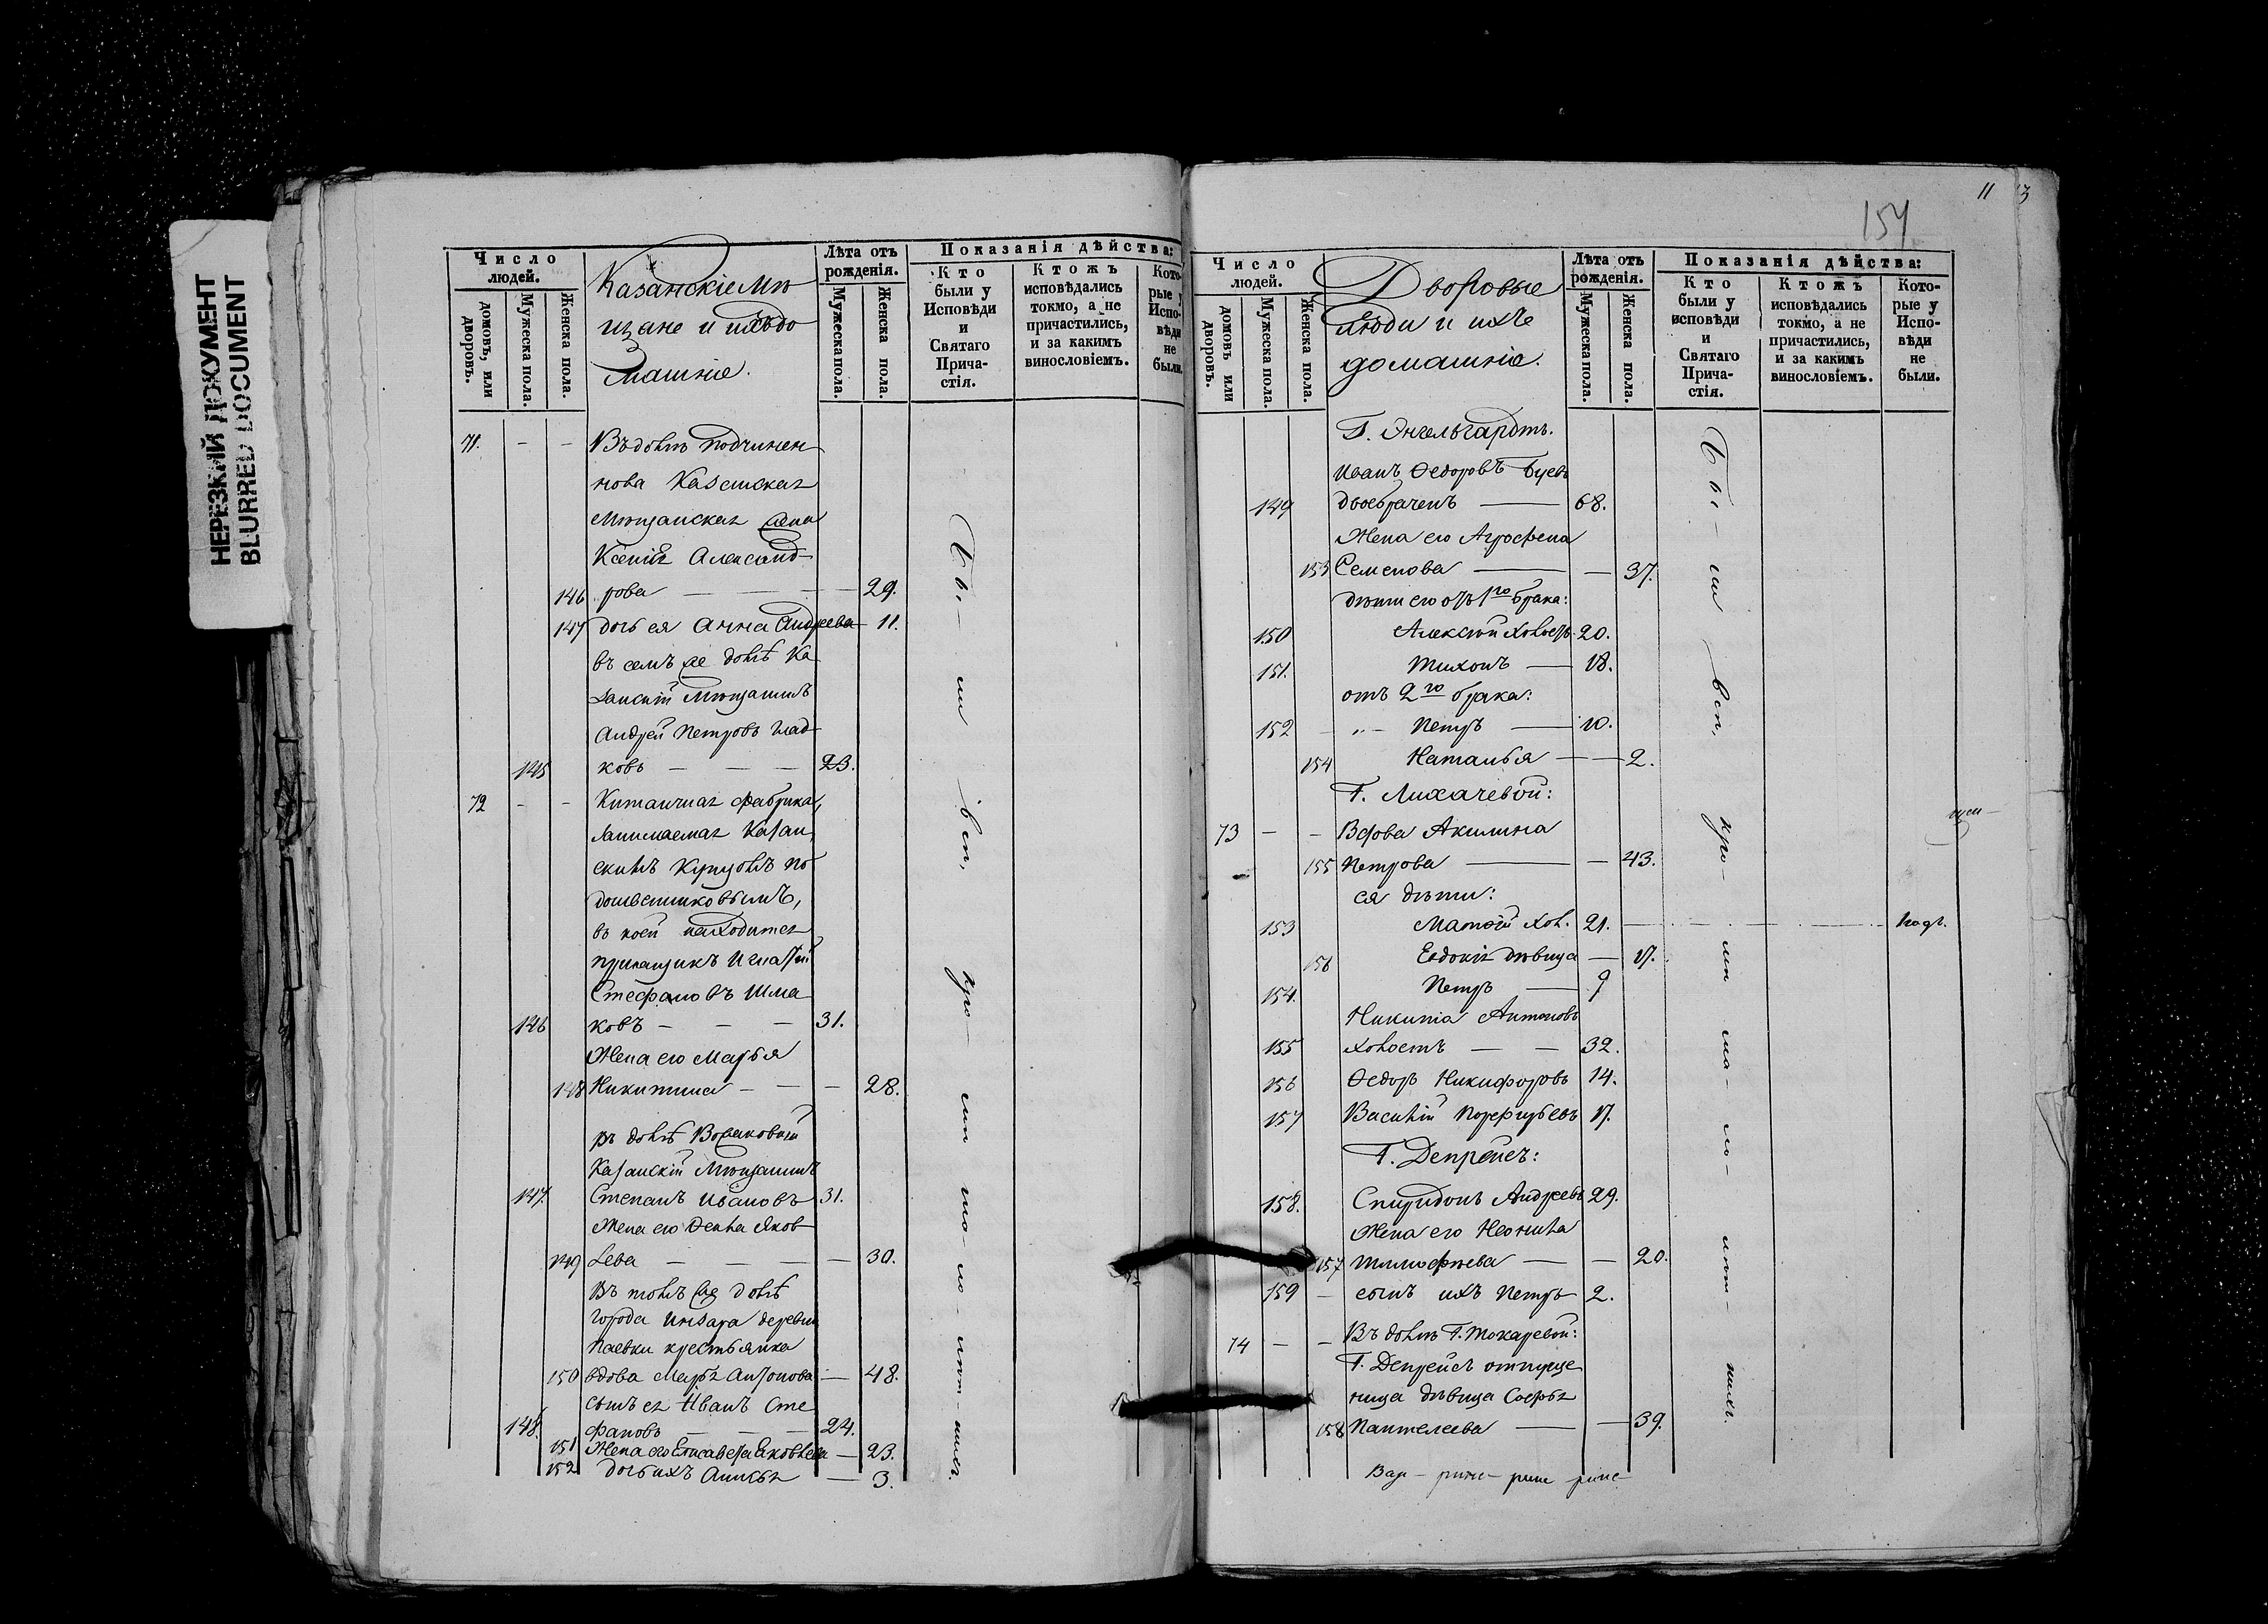 НЕРЕЗКИЙ ДОКУМЕНТ
BLURRED DOCUMENT
Число людей.
домовъ, или дворовъ.
Мужеска пола.
Женска пола.
Казанскіе Мѣ
щане и ихъ до
машніе.
Лѣта отъ рожденія.
Мужеска пола.
Женска пола.
Показанія дѣйства:
Кто были у Исповѣди и Святаго Прича-стія.
Ктожъ исповѣдались токмо, а не причастились, и за какимъ винословіемъ.
Кото-рые у Испо-вѣди не были.
71. - - Въ домѣ Подчинен
нова Казанская
Мѣщанская жена
Ксенія Александ
146 рова — — — 29.
147 дочь ея Анна Андреева 11.
въ семъ же домѣ Ка
занскій Мѣщанинъ
Андрей Петровъ Глад
145 ковъ — — — 23.
72 - - Китаичная фабрика,
занимаемая Казан
скимъ Купцомъ По
дошвенниковымъ,
въ коей находится
прикащикъ Игнатій
Стефановъ Шма
146 ковъ — — — 31.
Жена его Марья
148 Никитина — — — 28.
Въ домѣ
Казанскій Мѣщанинъ
147. Степанъ Ивановъ 31.
Жена его Фекла Яков
149 лева — — — 30.
Въ томъ же домѣ
города Инсара деревни
Паевки крестьянка
150 вдова Марья Антонова — 48.
сынъ ея Иванъ Сте
148. фановъ — — — 24.
151 Жена его Елисавета Яковлева — 23.
152 дочь ихъ Анисья — 3.
Бы-ли вси, про-
11
3
154
Число людей.
домовъ или дворовъ.
Мужеска пола.
Женска пола.
Дворовые
люди и ихъ
домашніе.
Лѣта отъ рожденія.
Мужеска пола.
Женска пола.
Показанія дѣйства:
Кто были у исповѣди и Святаго Прича-стія.
Ктожъ исповѣдались токмо, а не причастились, и за какимъ винословіемъ.
Кото-рые у Испо-вѣди не были.
Г. Энгельгардтъ.
Иванъ Федоровъ
149 двоебраченъ — 68.
Жена его Агрофена
153 Семенова — — 37.
дѣти его отъ 1го брака:
150 Алексѣй Холостъ 20.
151. Тихонъ — 18.
отъ 2го брака:
152 — Петръ — 10.
154 Наталья — — 2.
Г. Лихачевой:
73 - - Вдова Акилина
155 Петрова — — 43.
ея дѣти:
153 Матѳій Хол. 21.
156 Евдокія дѣвица — 17.
154. Петръ — 9
Никита Антоновъ
155 Холостъ — — 32.
156 Ѳедоръ Никифоровъ 14.
157 Василій Порфирьевъ 17.
Г. Депрейсъ:
158. Спиридонъ Андреевъ 29.
Жена его Неонила
157 Тимофѣева — — 20.
159 - сынъ ихъ Петръ 2.
74 - - Въ домѣ Г. Токаревой:
Г. Депрейсъ отпуще
ница дѣвица Софья
158 Пантелеева — — 39.
Бы-ли вси, про-